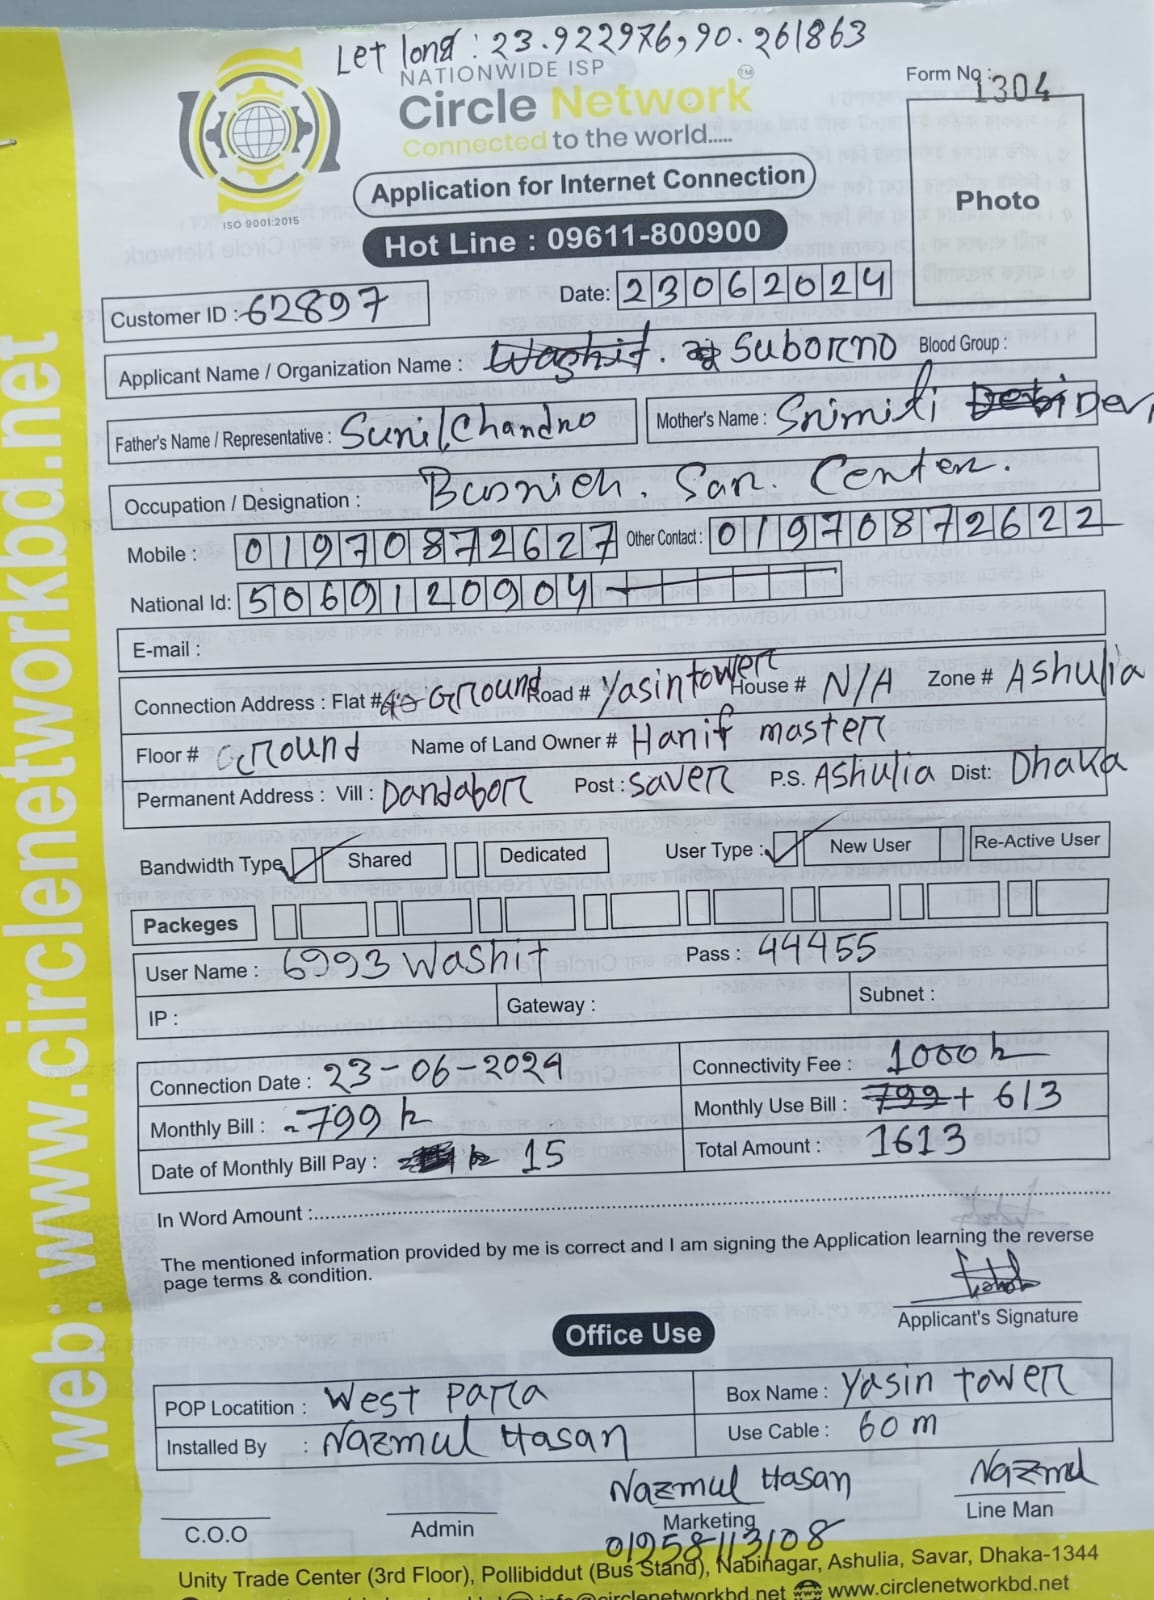 Let long : 23.922976,90.261863
NATIONWIDE ISP
Circle Network™
Connected to the world.....
ISO 9001:2015
Form No : 1304
Photo
Application for Internet Connection
Hot Line : 09611-800900
Customer ID : 62897
Date: 23062024
Applicant Name / Organization Name : Washit. Suborno Blood Group :
Father's Name / Representative : Sunil Chandro Mother's Name : Srimiti Debi Devi
Occupation / Designation : Busnich. San. Center.
Mobile : 01970872627 Other Contact : 01970872622
National Id: 5069120904
E-mail :
Connection Address : Flat # Ground Road # Yasin tower House # N/A Zone # Ashulia
Floor # Ground Name of Land Owner # Hanif master
Permanent Address : Vill : Dandabor Post : Saver P.S. Ashulia Dist: Dhaka
Bandwidth Type Shared Dedicated User Type : New User Re-Active User
Packeges
User Name : 6993 Washit Pass : 44455
IP : Gateway : Subnet :
Connection Date : 23-06-2024 Connectivity Fee : 1000
Monthly Bill : 799 Monthly Use Bill : 799 + 613
Date of Monthly Bill Pay : 15 Total Amount : 1613
In Word Amount :
The mentioned information provided by me is correct and I am signing the Application learning the reverse
page terms & condition.
Applicant's Signature
Office Use
POP Locatition : West Para Box Name : Yasin tower
Installed By : Nazmul Hasan Use Cable : 60 m
Nazmul Hasan Nazmul
C.O.O Admin Marketing Line Man
01958113108
Unity Trade Center (3rd Floor), Pollibiddut (Bus Stand), Nabinagar, Ashulia, Savar, Dhaka-1344
info@circlenetworkbd.net www.circlenetworkbd.net
web: www.circlenetworkbd.net